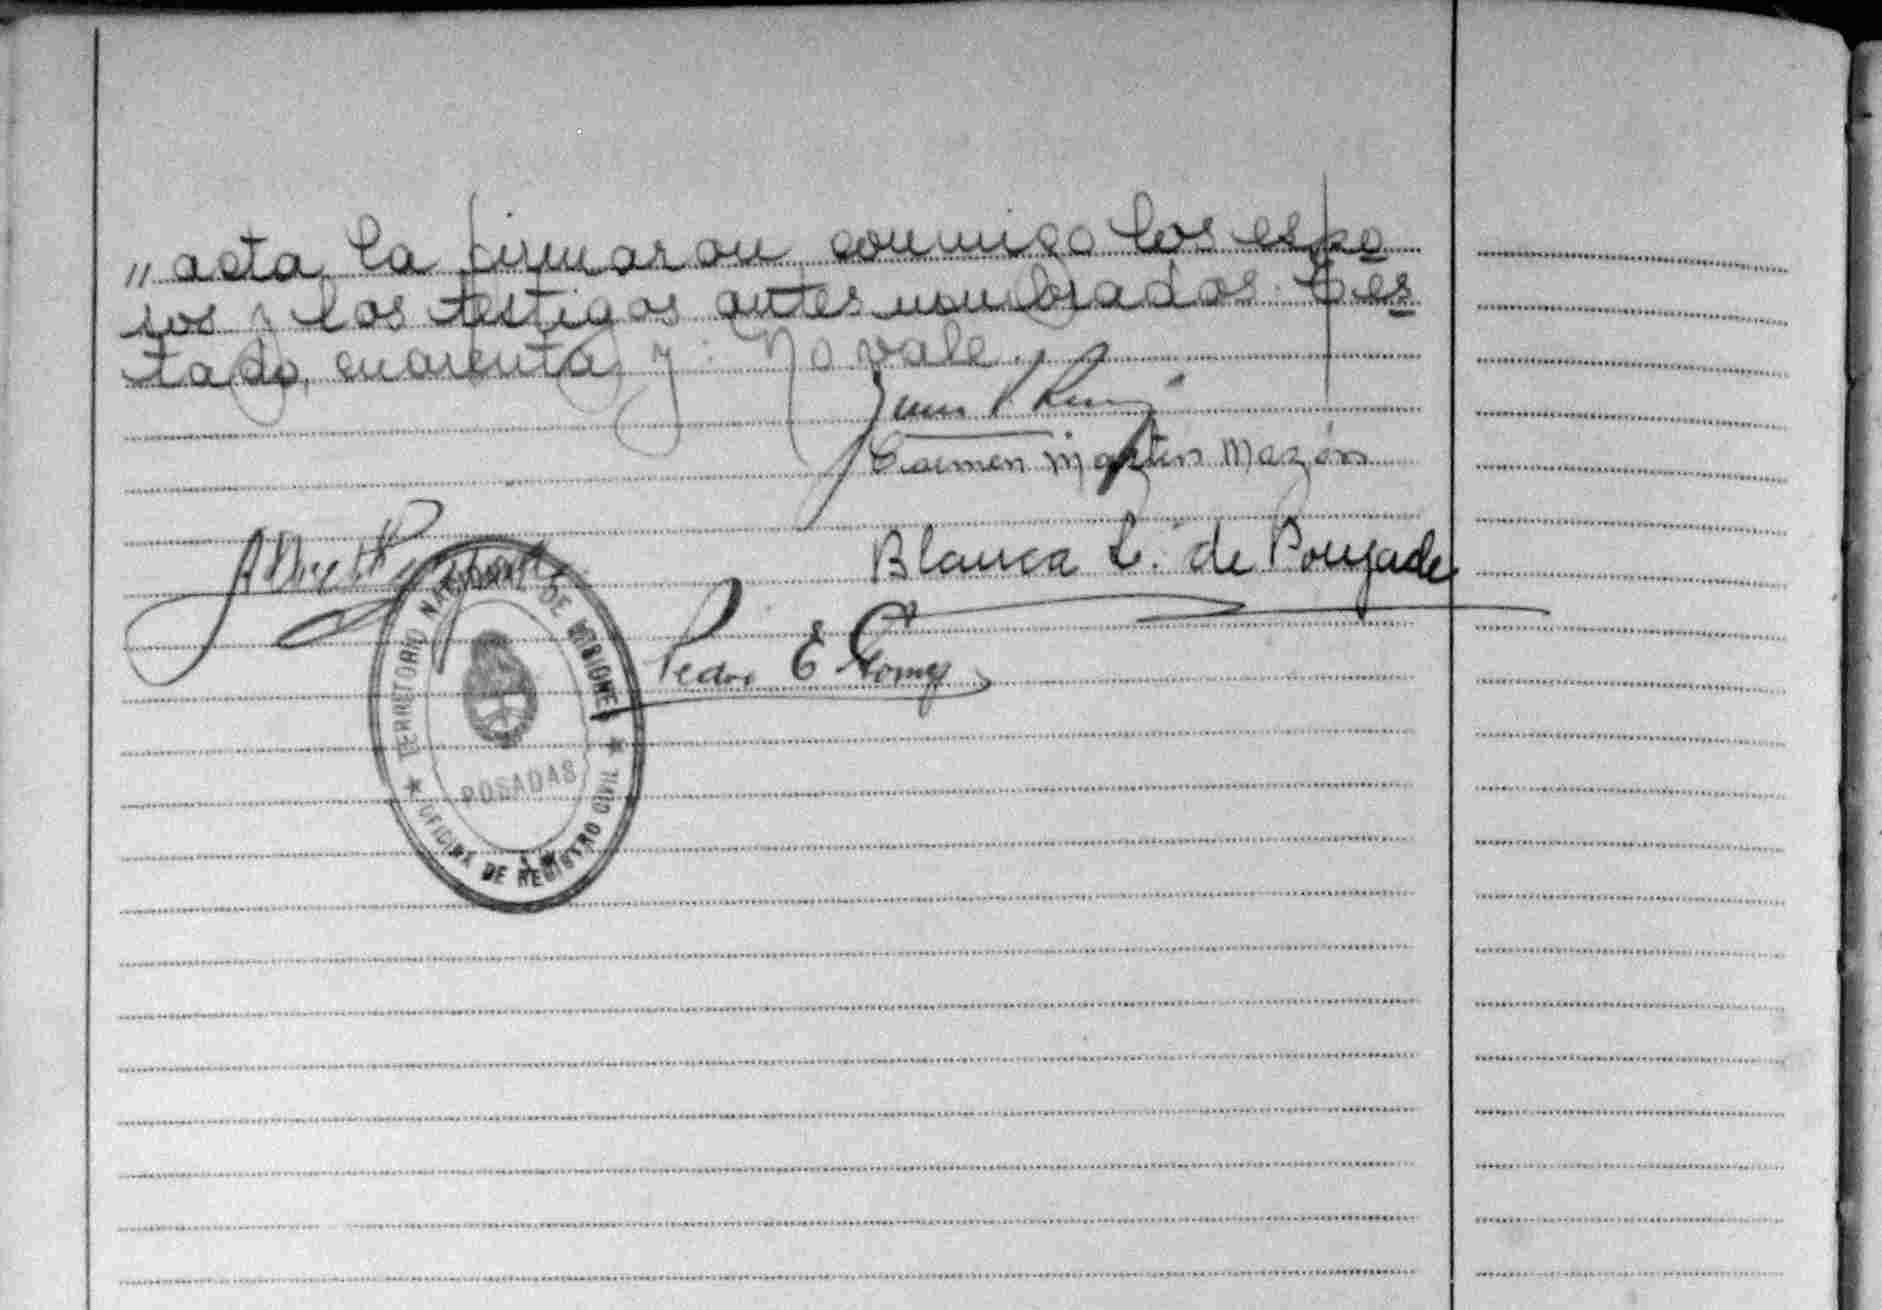 „ acta, la firmaron conmigo los espo
sos y los testigos antes nombrados. Tes
tado, cuarenta y: No vale.
Juan
Carmen Martin Mazón
Blanca L. de Poujade
Pedro E Gomez
TERRITORIO NACIONAL DE MISIONES
POSADAS
★ OFICINA DE REGISTRO CIVIL ★